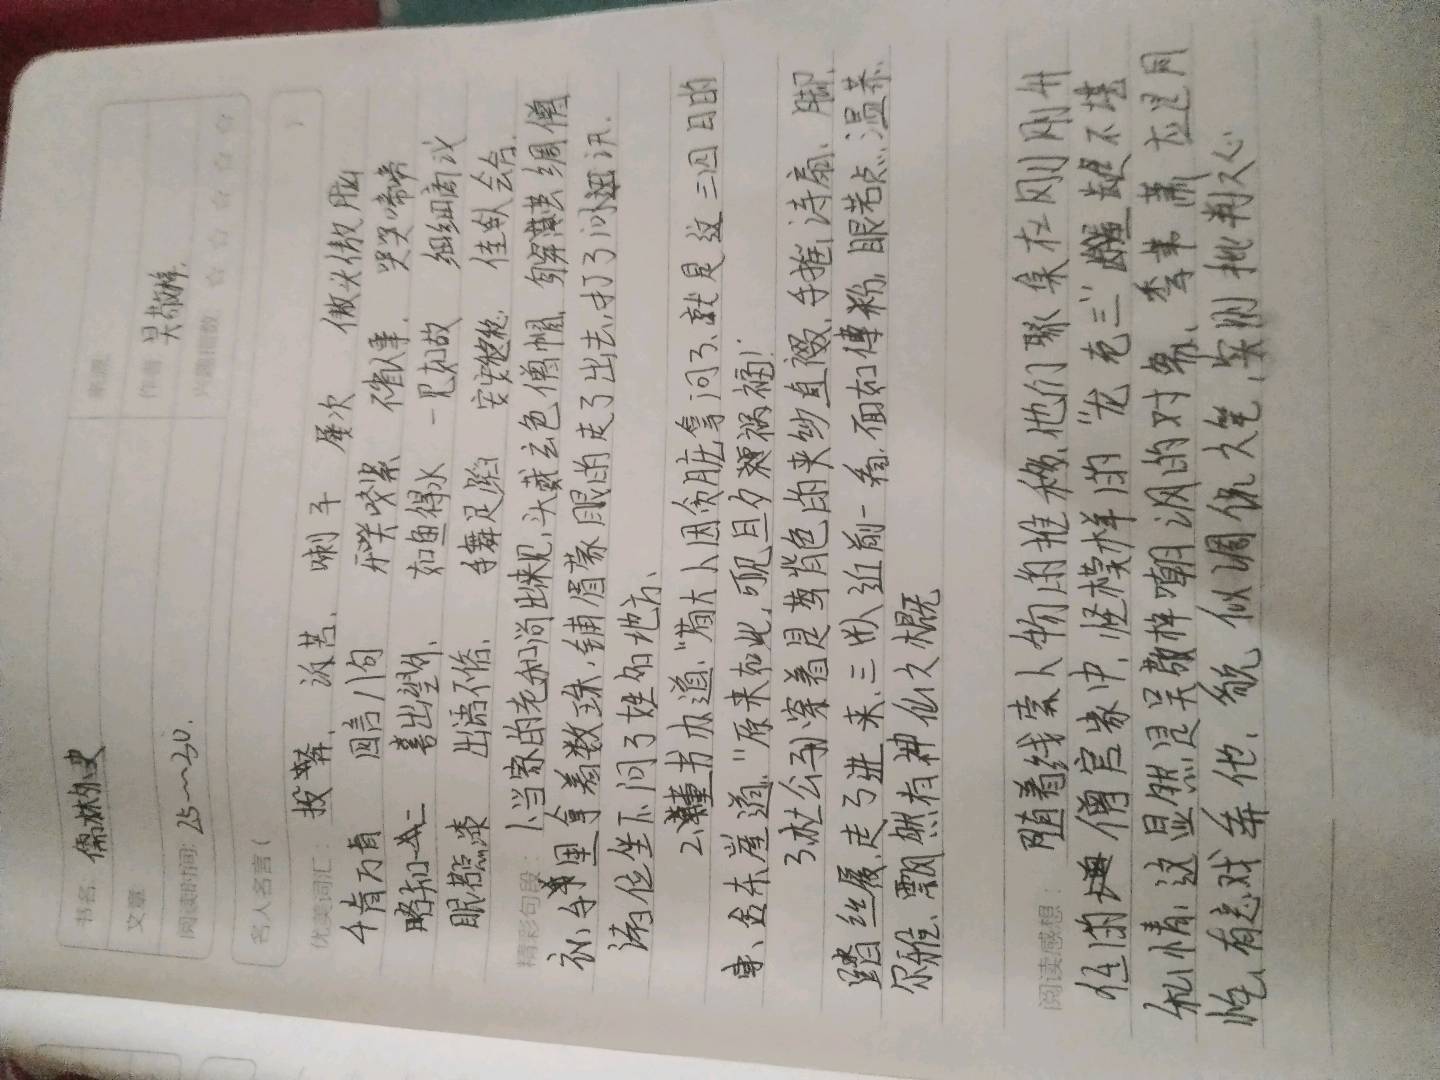 书名: 儒林外史
来源:
文章
作者 吴敬梓.
阅读时间: 25~30.
兴趣指数 ☆ ☆ ☆ ☆ ☆
名人名言 ( )
优美词汇: 投奔、 汲苦、 喇子 屡次 傲头傲脑
千肯万肯 四言八句 衙人事. 哭哭啼啼
略知一二 喜出望外、 如鱼得水 一见如故 细细商议
眼若点漆 出语不俗、 手舞足蹈 安安稳稳. 佳趴会合.
精彩句段: 1、当家的老和尚出来见,头戴玄色僧帽, 身穿茧绸僧
衣,手里拿着数珠,铺眉蒙眼的走了出去,打了问讯.
请位坐下问了姓名地方、
2、董书办道、"荀大人因贪赃拿问了、就是这三四日的
事、金东崖道、"原来如此,可见旦夕祸福!"
3杜公子穿着是莺背色的夹纱直裰、手摇诗扇、脚
踏丝履,走了进来、三人近前一看,面如傅粉,眼若点、温恭、
尔雅、飘然有神仙之概
阅读感想: 随着线索人物的推移、他们聚集在刚刚升
任的僧官家中,怪模样的"龙老三"龌龊不堪
和情,这显然是吴敬梓嘲讽的对象、季苇萧 大是同
性、有意戏弄他、貌似调侃之笔,实则批判之心